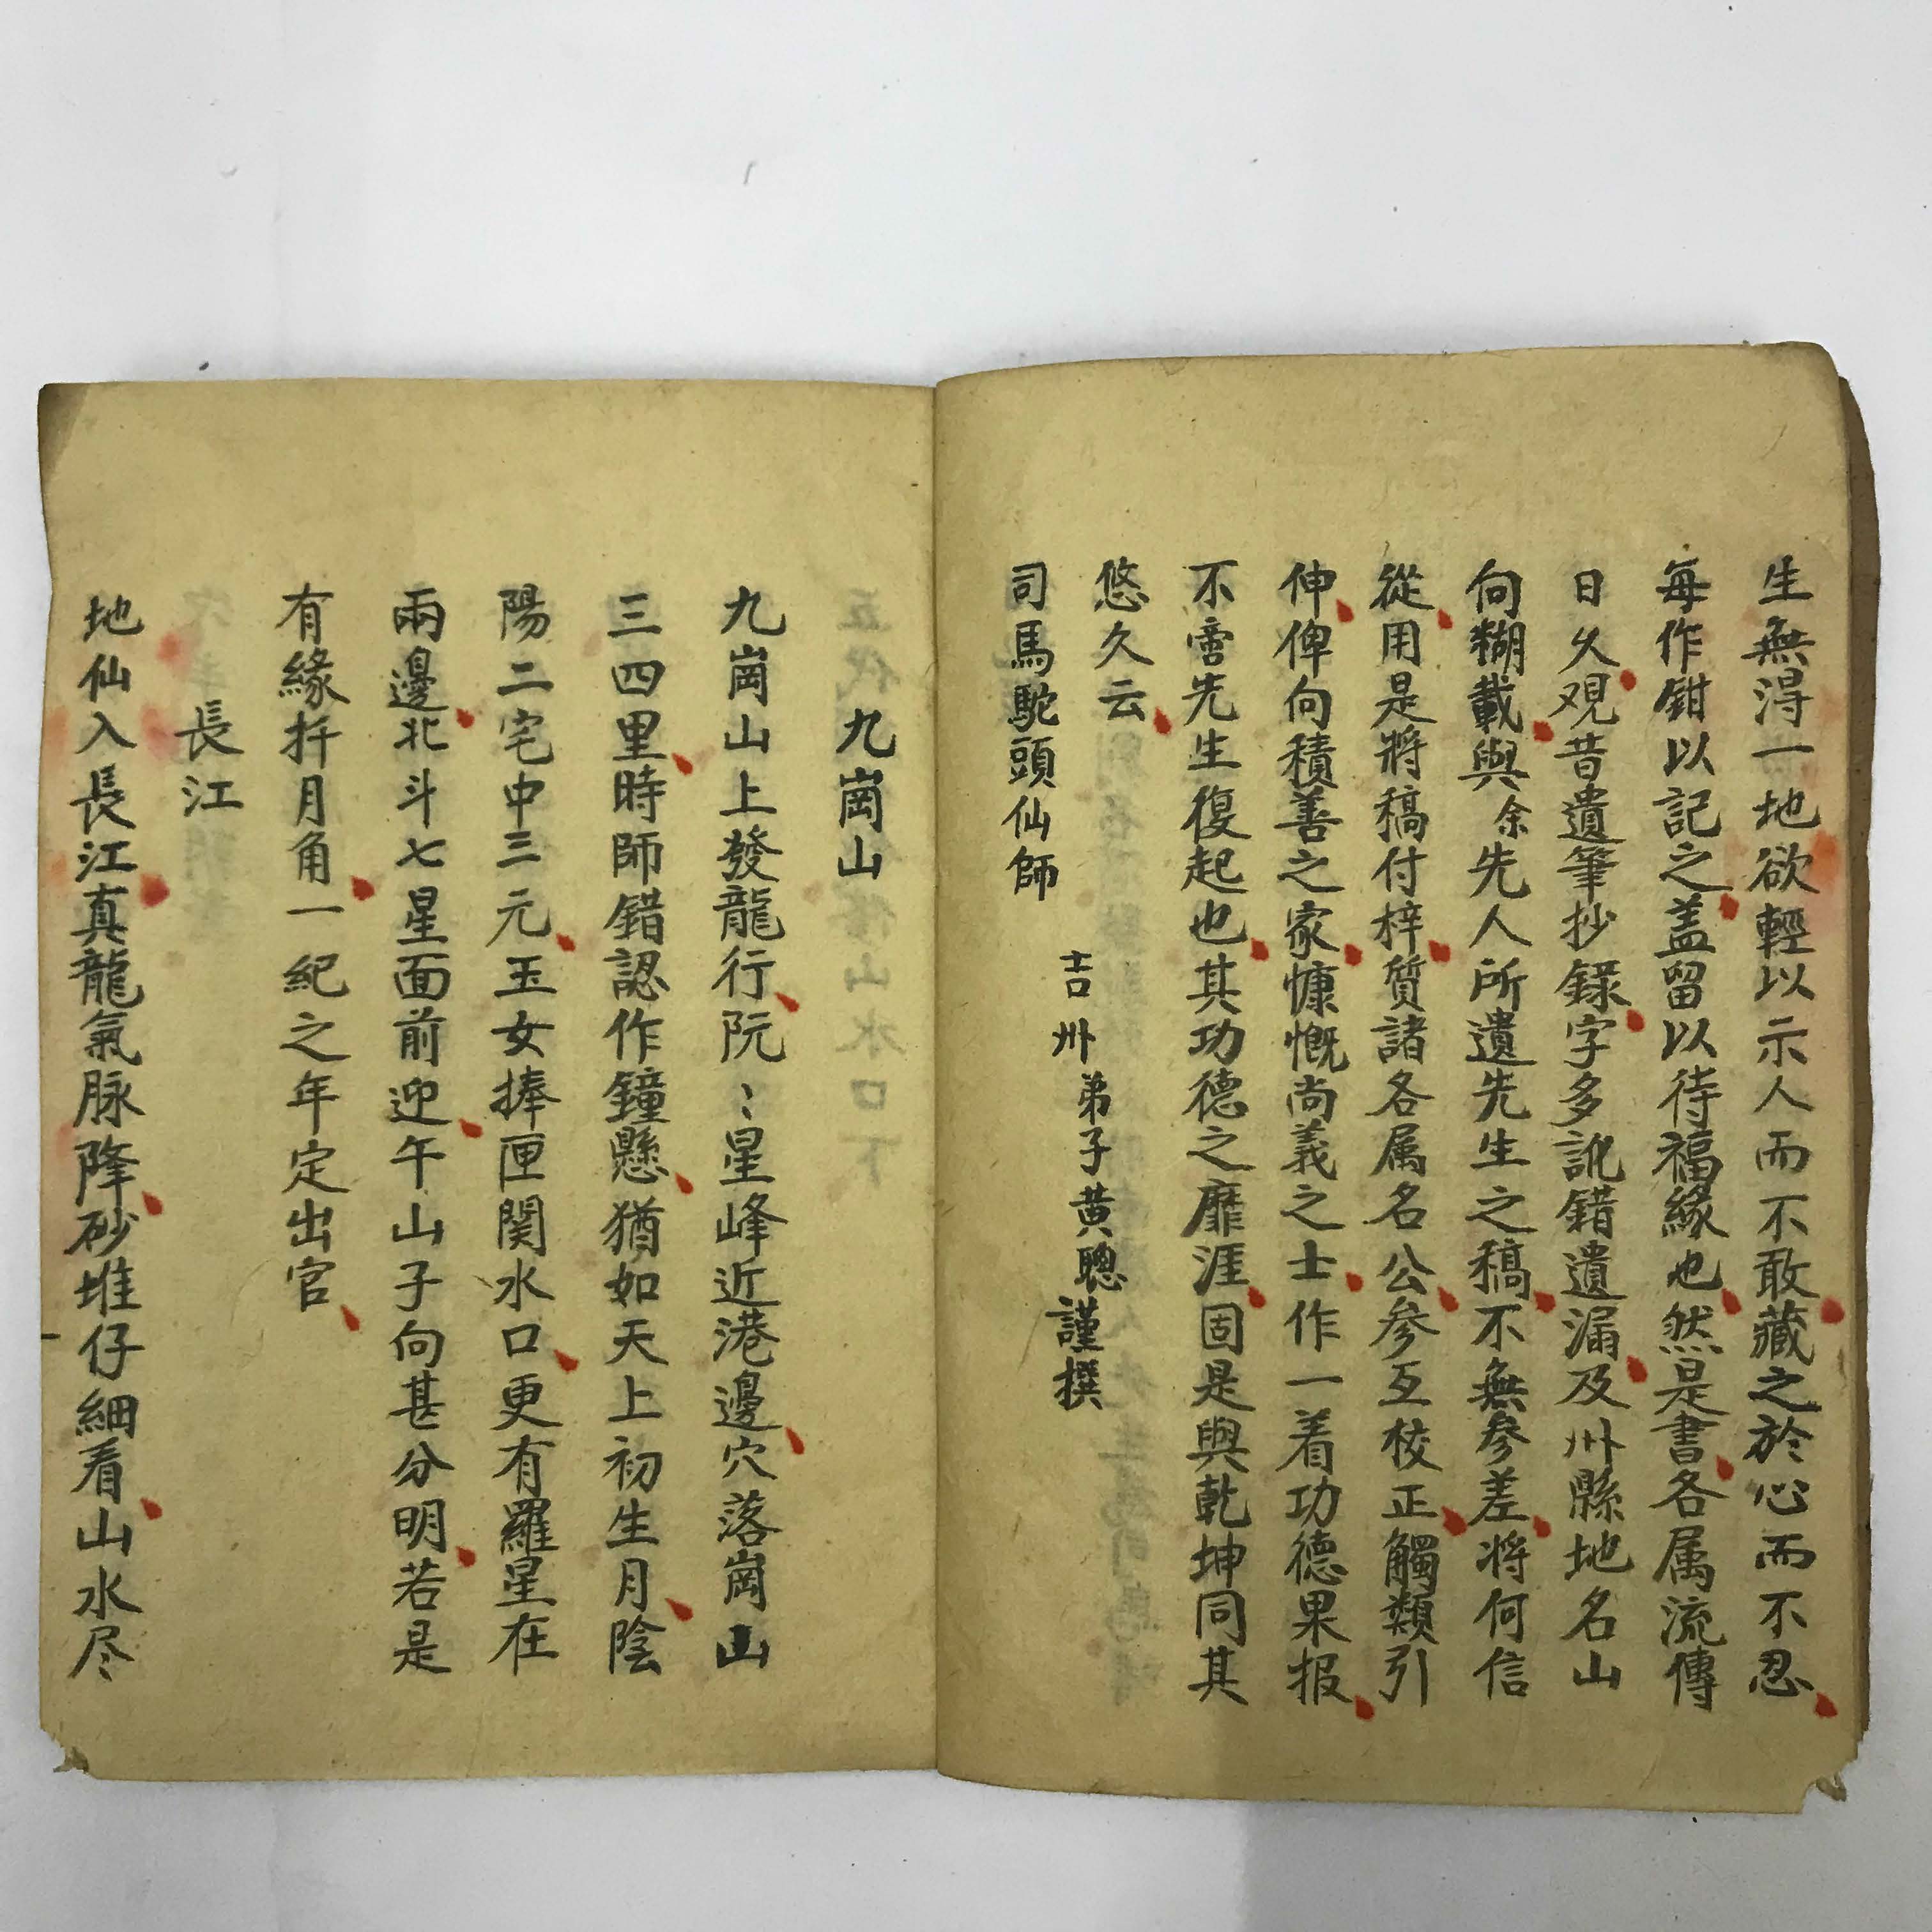 生無淂一地欲輕以示人而不敢藏之於心而不忍
每作鉗以記之盖留以待福緣也然是書各属流傳
日久观昔遺筆抄錄字多訛錯遺漏及州縣地名山
向糊載與余先人所遺先生之稿不無參差将何信
從用是將稿付梓質諸各属名公參互校正觸類引
伸俾向積善之家慷慨尚義之士作一着功德果报
不啻先生復起也其功德之靡涯固是與乾坤同其
悠久云
吉州弟子黄聰謹撰
司馬駝頭仙師
九崗山
九崗山上發龍行阮〻星峰近港邊穴落崗山
三四里時師錯認作鐘懸猶如天上初生月陰
陽二宅中三元玉女捧匣関水口更有羅星在
兩邊北斗七星面前迎午山子向甚分明若是
有緣扦月角一紀之年定出官
長江
地仙入長江真龍氣脉降砂堆仔細看山水尽